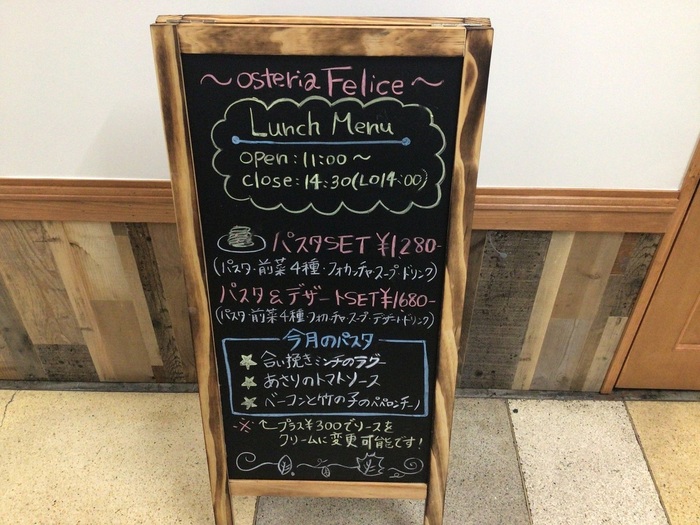 ～osteria Felice～
Lunch Menu
open：11:00～
close：14:30(LO14:00)
パスタSET ¥1280-
(パスタ・前菜4種・フォカッチャ・スープ・ドリンク)
パスタ&デザートSET¥1680-
(パスタ・前菜4種・フォカッチャ・スープ・デザート・ドリンク)
今月のパスタ
☆ 合い挽きミンチのラグー
☆ あさりのトマトソース
☆ ベーコンと竹の子のペペロンチーノ
※ ↑プラス¥300でソースを
クリームに変更可能です！